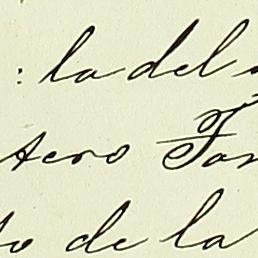 : la del
tero
to de la